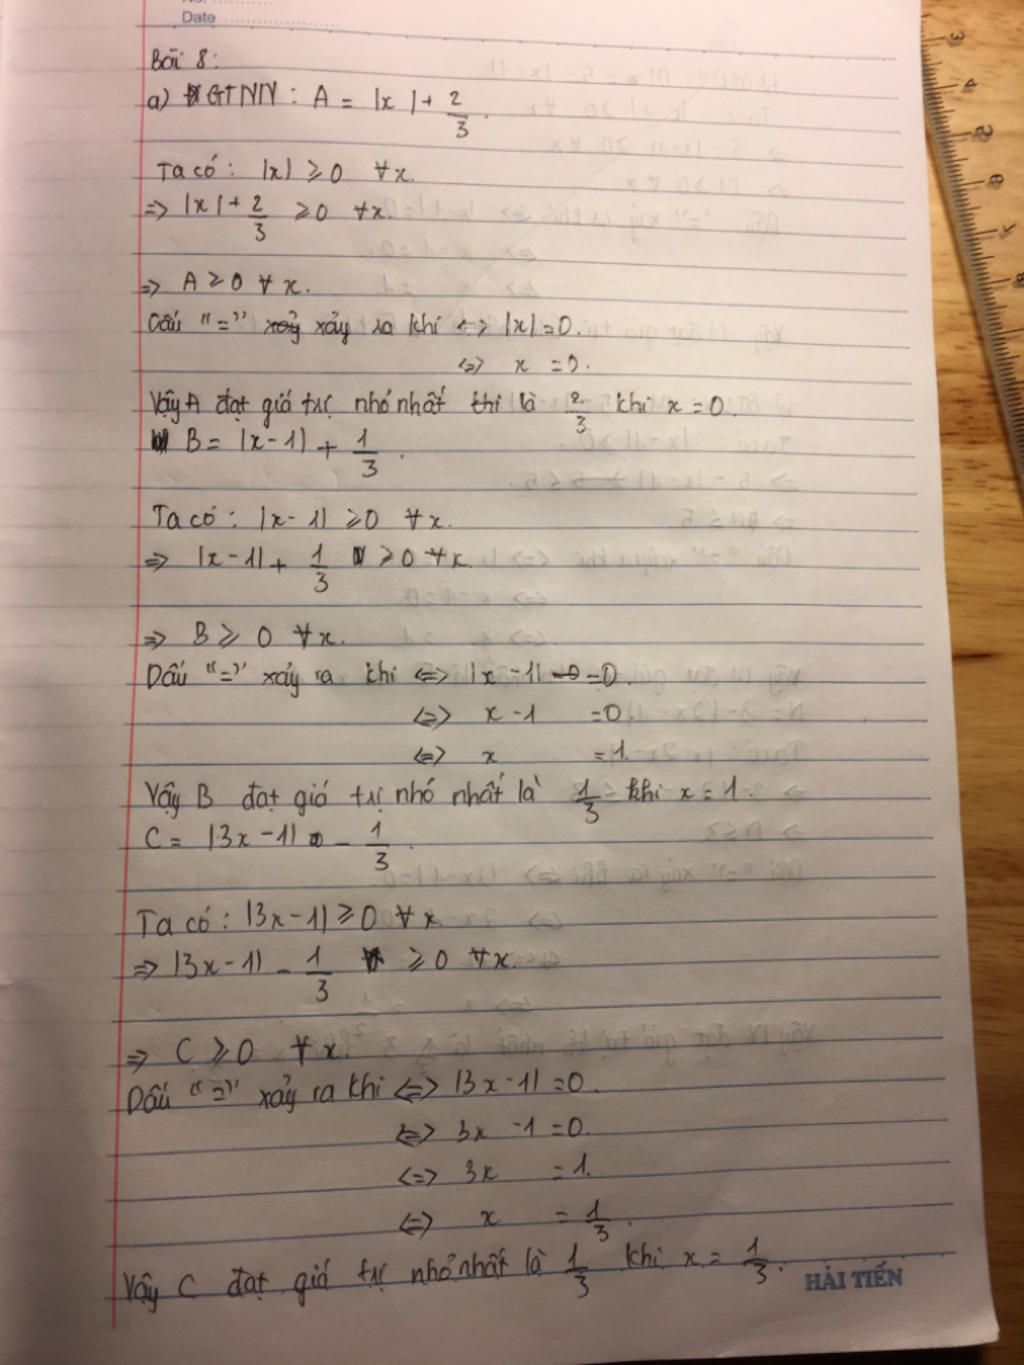 No:
Date
Bài 8:
a) GTNN: A = |x| + 2/3.
Ta có: |x| ≥ 0 ∀x.
=> |x| + 2/3 ≥ 0 ∀x.
=> A ≥ 0 ∀x.
Dấu "=" xảy xảy ra khi <=> |x| = 0.
<=> x = 0.
Vậy A đạt giá trị nhỏ nhất thì là 2/3 khi x = 0.
B = |x - 1| + 1/3.
Ta có: |x - 1| ≥ 0 ∀x.
=> |x - 1| + 1/3 ≥ 0 ∀x.
=> B ≥ 0 ∀x.
Dấu "=" xảy ra khi <=> |x - 1| = 0.
<=> x - 1 = 0
<=> x = 1.
Vậy B đạt giá trị nhỏ nhất là 1/3 khi x = 1.
C = |3x - 1| - 1/3.
Ta có: |3x - 1| ≥ 0 ∀x
=> |3x - 1| - 1/3 ≥ 0 ∀x.
=> C ≥ 0 ∀x.
Dấu "=" xảy ra khi <=> |3x - 1| = 0.
<=> 3x - 1 = 0.
<=> 3x = 1.
<=> x = 1/3.
Vậy C đạt giá trị nhỏ nhất là 1/3 khi x = 1/3.
HẢI TIẾN